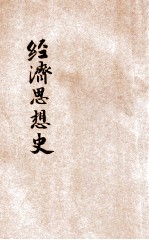 经濟思想史